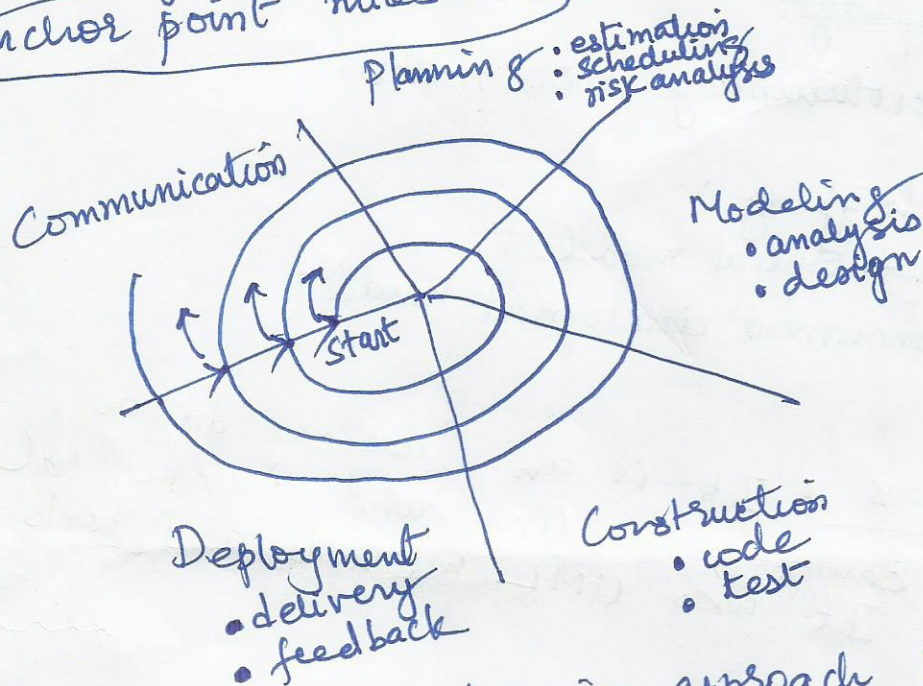 anchor point
Planning • estimation
• scheduling
• risk analysis
Communication
Modeling
• analysis
• design
Start
Deployment
• delivery
• feedback
Construction
• code
• test
approach